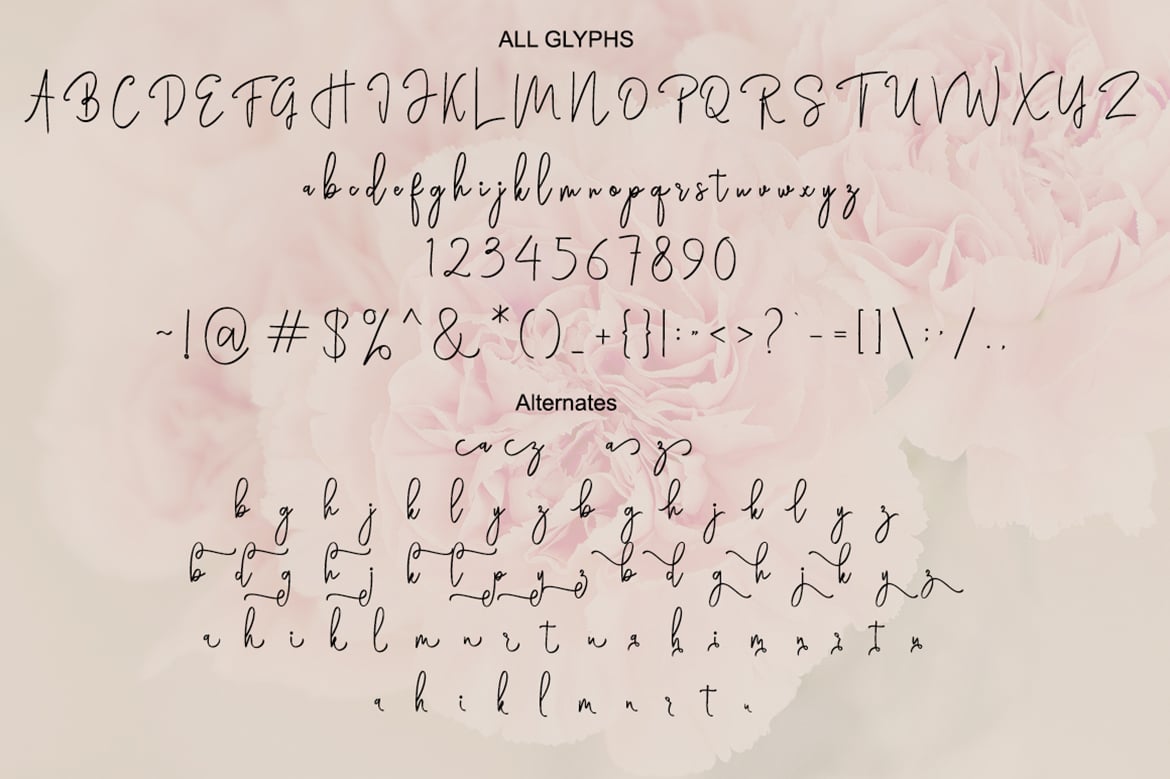 ALL GLYPHS
A B C D E F G H I J K L M N O P Q R S T U V W X Y Z
a b c d e f g h i j k l m n o p q r s t u v w x y z
1 2 3 4 5 6 7 8 9 0
~ ! @ # $ % ^ & * ( ) _ + { } | : " < > ? ` - = [ ] \ ; ' / . ,
Alternates
ca cz a z
b g h j k l y z b g h j k l y z
b d g h j k l p y z b d g h j k y z
a h i k l m n r t u a h i m n r t u
a h i k l m n r t u